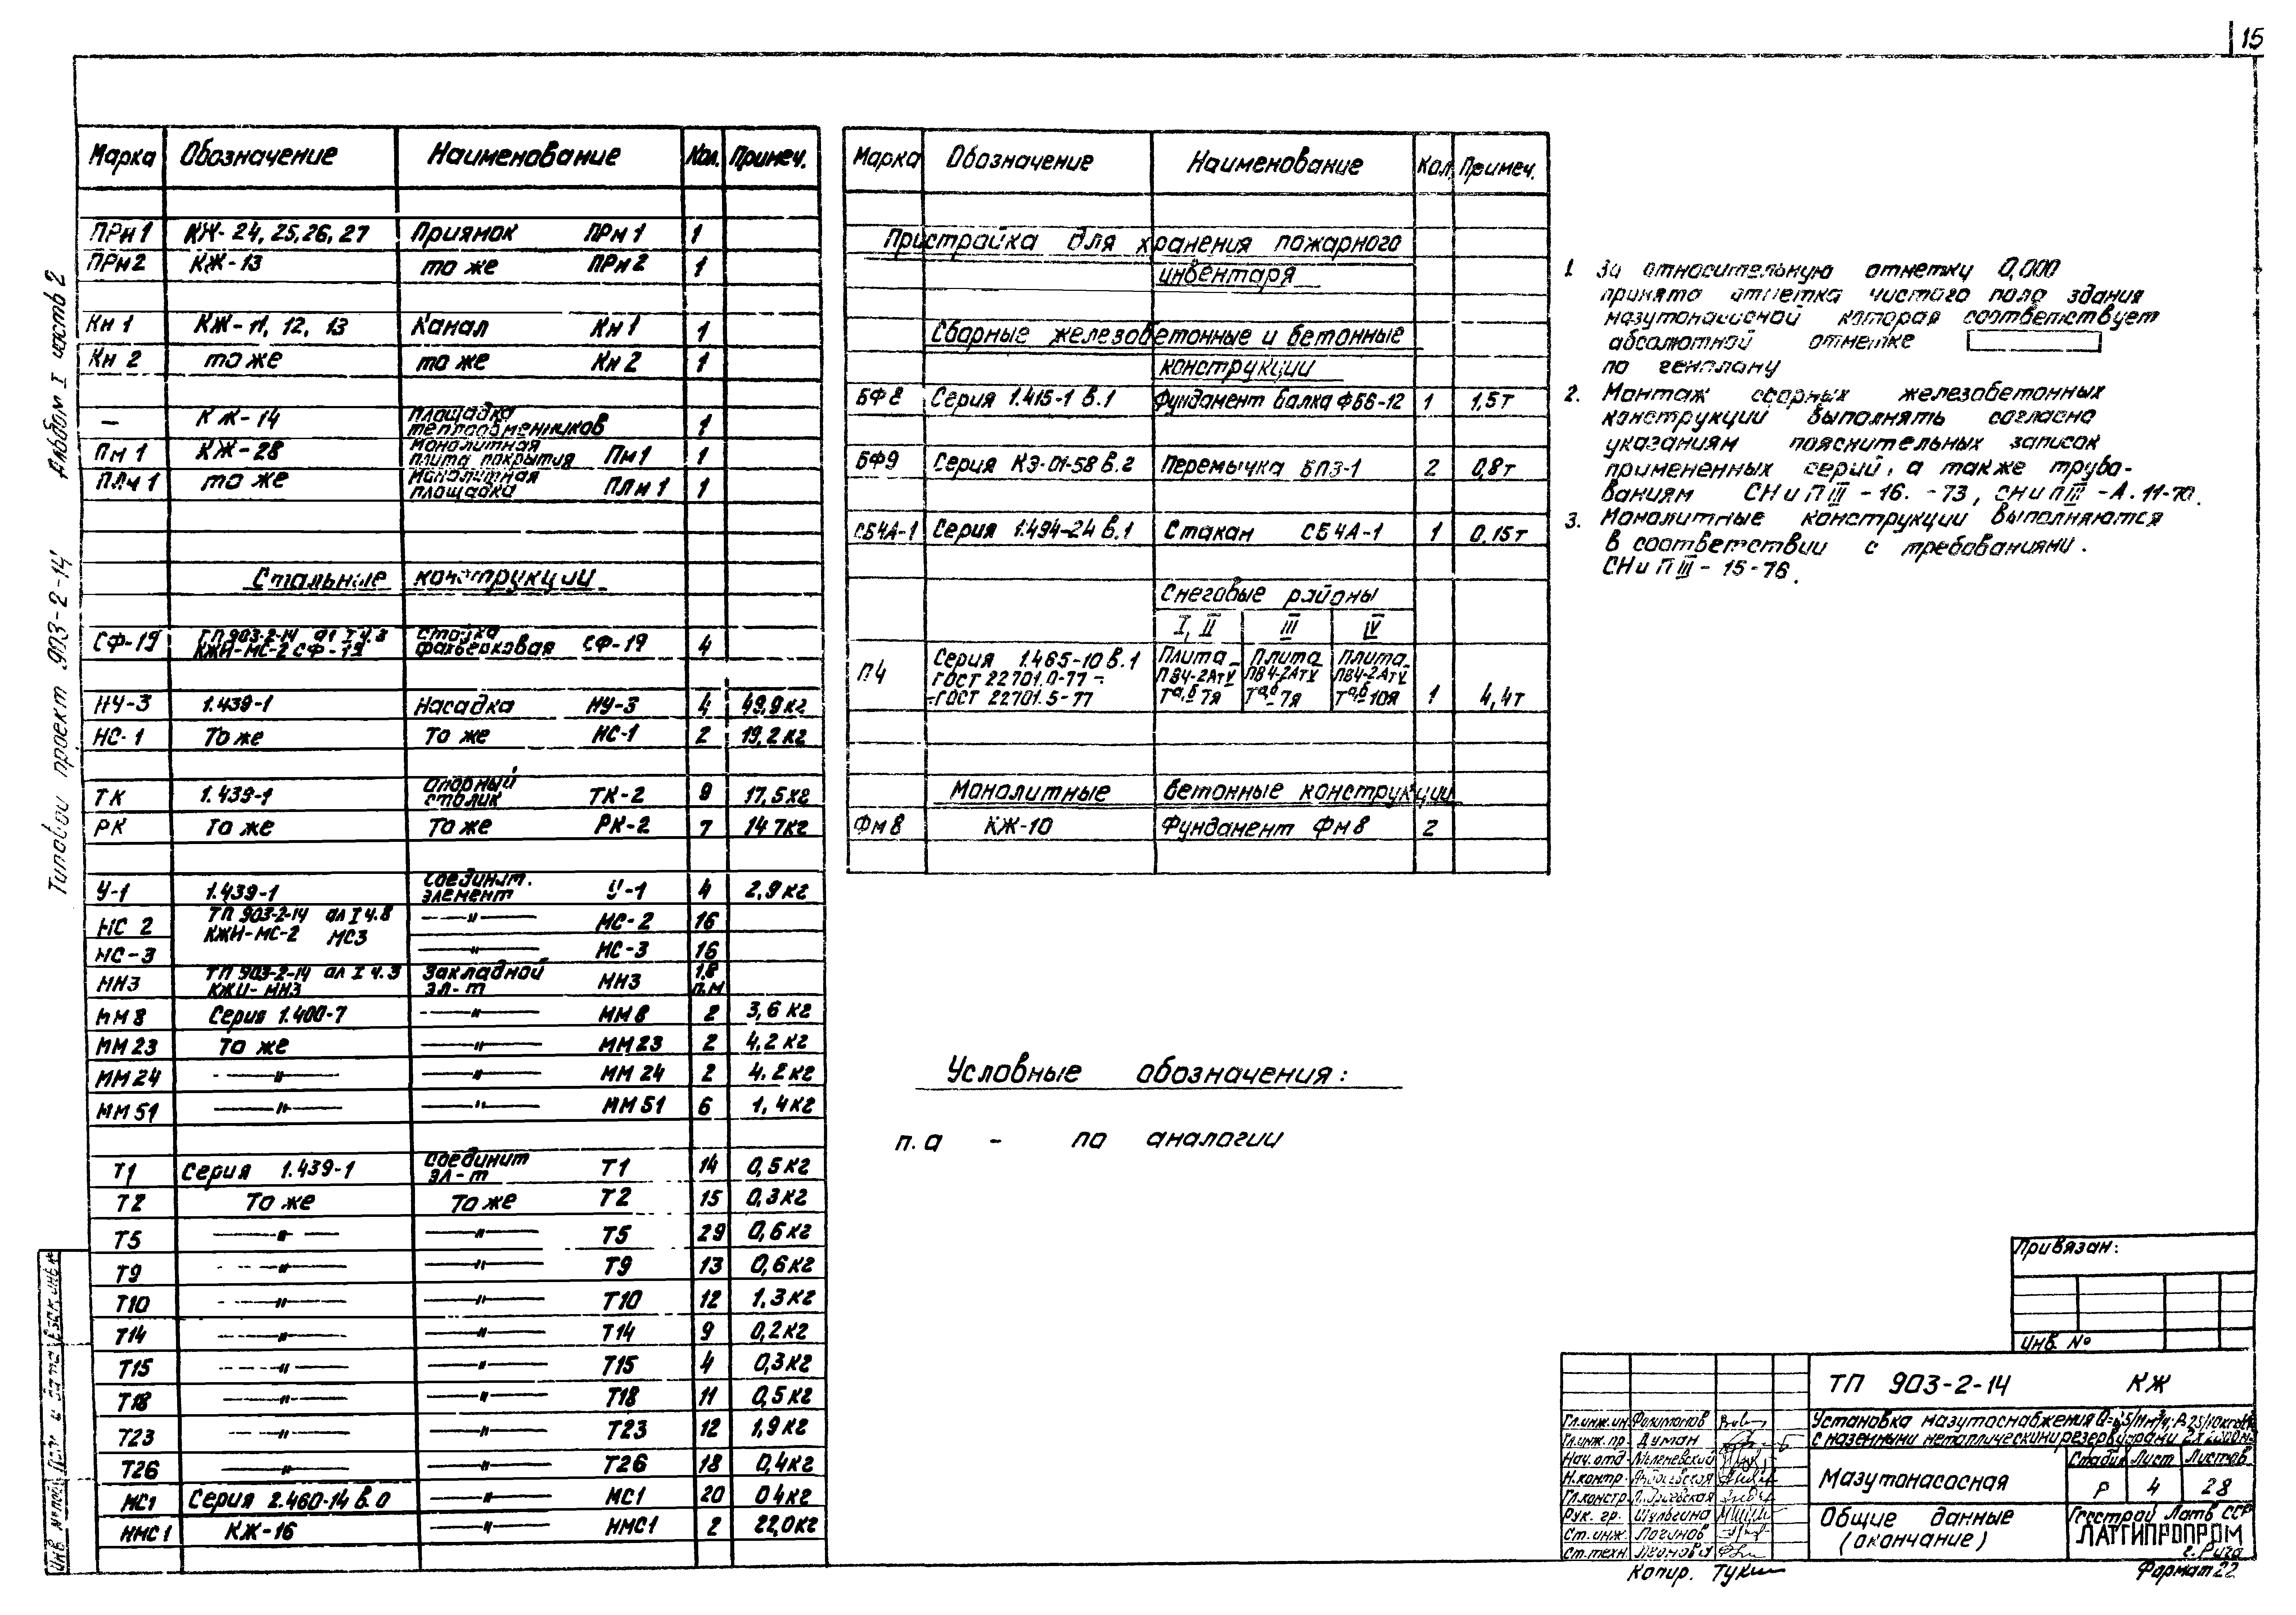 15
Альбом I часть 2
Типовой проект 903-2-14
Марка Обозначение Наименование Кол. Примеч.
ПРм1 КЖ-24,25,26,27 Приямок ПРм1 1
ПРм2 КЖ-13 то же ПРм2 1
Кн1 КЖ-11, 12, 13 Канал Кн1 1
Кн2 то же то же Кн2 1
— КЖ-14 площадка теплообменников 1
Пм1 КЖ-28 Монолитная плита покрытия Пм1 1
ПЛм1 то же Монолитная площадка ПЛм1 1
Стальные конструкции
СФ-19 ТП903-2-14 ал I ч.8 КЖИ-МС-2 СФ-19 стойка фахверковая СФ-19 4
НУ-3 1.439-1 Насадка НУ-3 4 49,9кг
НС-1 То же То же НС-1 2 19,2кг
ТК 1.439-1 опорный столик ТК-2 9 17,5кг
РК То же То же РК-2 7 14 7кг
У-1 1.439-1 соединит. элемент У-1 4 2,9кг
МС 2 ТП 903-2-14 ал I ч.8 —"— МС-2 16
КЖИ-МС-2 МС3
МС-3 —"— МС-3 16
МН3 ТП 903-2-14 ал I ч.3 КЖИ-МН3 Закладной эл-т МН3 1,8 п.м
ММ8 Серия 1.400-7 —"— ММ8 2 3,6 кг
ММ23 То же —"— ММ23 2 4,2 кг
ММ24 —"— —"— ММ24 2 4.2кг
ММ51 —"— —"— ММ51 6 1,4кг
Т1 Серия 1.439-1 соединит эл-т Т1 14 0,5кг
Т2 То же То же Т2 15 0,3кг
Т5 —"— —"— Т5 29 0,6кг
Т9 —"— —"— Т9 13 0,6кг
Т10 —"— —"— Т10 12 1,3кг
Т14 —"— —"— Т14 9 0,2кг
Т15 —"— —"— Т15 4 0,3кг
Т18 —"— —"— Т18 11 0,5кг
Т23 —"— —"— Т23 12 1,9кг
Т26 —"— —"— Т26 18 0,4кг
МС1 Серия 2.460-14 в.0 —"— МС1 20 0 4кг
НМС1 КЖ-16 —"— НМС1 2 22,0кг
Марка Обозначение Наименование Кол. Примеч.
Пристройка для хранения пожарного
инвентаря
Сборные железобетонные и бетонные
конструкции
БФ8 Серия 1.415-1 в.1 Фундамент балка ФБ6-12 1 1,5т
БФ9 Серия КЭ-01-58 в.2 Перемычка БП3-1 2 0,8т
СБ4А-1 Серия 1.494-24 в.1 Стакан СБ4А-1 1 0,15т
Снеговые районы
I, II III IV
П4 Серия 1.465-10 в.1 ГОСТ 22701.0-77 - -ГОСТ 22701.5-77 Плита ПВ4-2АтV Та,б 7я Плита ПВ4-2АтV Та,б 7я Плита ПВ4-2АтV Та,б 10я 1 4,4т
Монолитные бетонные конструкции
Фм8 КЖ-10 Фундамент Фм8 2
Условные обозначения:
п.а - по аналогии
1. За относительную отметку 0,000
принята отметка чистого пола здания
мазутонасосной которая соответствует
абсолютной отметке
по генплану
2. Монтаж сборных железобетонных
конструкций выполнять согласно
указаниям пояснительных записок
примененных серий, а также требо-
ваниям СНиПIII-16.-73, СНиПIII-А.11-70.
3. Монолитные конструкции выполняются
в соответствии с требованиями.
СНиПIII-15-76.
Привязан:
Инв. №
ТП 903-2-14 КЖ
Установка мазутоснабжения
с наземными металлическими резервуарами
Гл.инж.ин. Филимонов
Гл.инж.пр. Думан
Нач.отд.
Н.контр.
Гл.констр.
Рук. гр. Шульгина
Ст.инж. Логинов
Ст.техн. Леонова
Мазутонасосная
Стадия Лист Листов
Р 4 28
Общие данные
(окончание)
Госстрой Латв ССР
ЛАТГИПРОПРОМ
г. Рига
Копир.
Формат 22